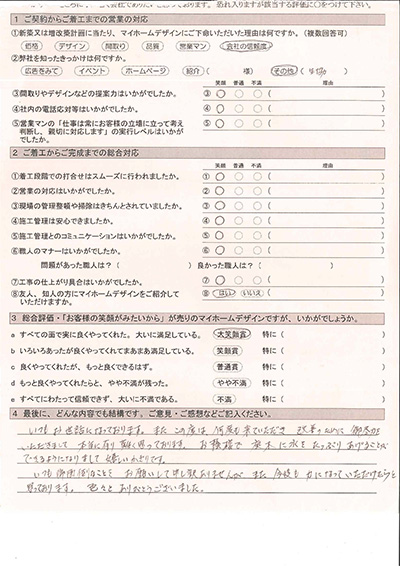 １ ご契約からご着工までの営業の対応
①新築又は増改築計画に当たり、マイホームデザインにご下命いただいた理由は何ですか。（複数回答可）
価格 デザイン 間取り 品質 営業マン 会社の信頼度
②弊社を知ったきっかけは何ですか。
広告をみて イベント ホームページ 紹介（ 様） その他（ ）
笑顔 普通 不満 理由
③間取りやデザインなどの提案力はいかがでしたか。 ③○ ○ ○（
④社内の電話応対等はいかがでしたか。 ④○ ○ ○（
⑤営業マンの「仕事は常にお客様の立場に立って考え ⑤○ ○ ○（
判断し、親切に対応します」の実行レベルはいかが
でしたか。
２ ご着工からご完成までの総合対応
笑顔 普通 不満 理由
①着工段階での打合せはスムーズに行われましたか。 ①○ ○ ○（
②営業の対応はいかがでしたか。 ②○ ○ ○（
③現場の管理整頓や掃除はきちんとされていましたか。 ③○ ○ ○（
④施工管理は安心できましたか。 ④○ ○ ○（
⑤施工管理とのコミュニケーションはいかがでしたか。 ⑤○ ○ ○（
⑥職人のマナーはいかがでしたか。 ⑥○ ○ ○（
問題があった職人は？（ ）良かった職人は？（ ）
⑦工事の仕上がり具合はいかがでしたか。 ⑦○ ○ ○（
⑧友人、知人の方にマイホームデザインをご紹介して ⑧ はい いいえ（
いただけますか。
３ 総合評価・「お客様の笑顔がみたいから」が売りのマイホームデザインですが、いかがでしょうか。
a すべての面で実に良くやってくれた。大いに満足している。 大笑顔賞 特に（ ）
b いろいろあったが良くやってくれてまあまあ満足している。 笑顔賞 特に（ ）
c 良くやってくれたが、もっと良くできるはず。 普通賞 特に（ ）
d もっと良くやってくれたらと、やや不満が残った。 やや不満 特に（ ）
e すべてにわたって信頼できず、大いに不満である。 不満 特に（ ）
４ 最後に、どんな内容でも結構です。ご意見・ご感想などご記入ください。
いつもお世話になっております。また この度は、何度も来ていただき 改善のために
いただきまして 本当に有り難く思っております。お陰様で 草木に水を たっぷり あげることが
できるようになりまして 嬉しいかぎりです。
いつも 面倒なことを お願いして申し訳ありませんが また 今後も 力になっていただけたらと
思っております。色々と ありがとうございました。